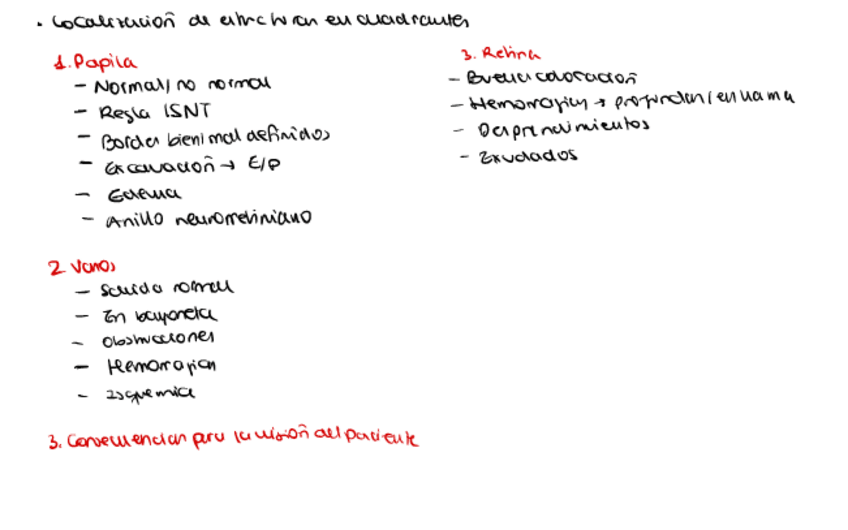 • Localización de estructuras en cuadrantes
1. Papila
- Normal/no normal
- Regla ISNT
- Bordes bien/mal definidos
- Excavación → E/P
- Edema
- Anillo neurorretiniano
2 Vasos
- Salida normal
- En bayoneta
- Obstrucciones
- Hemorragias
- Isquemia
3. Consecuencias para la visión del paciente
3. Retina
- Buena coloración
- Hemorragias → profundas/en llama
- Desprendimientos
- Exudados